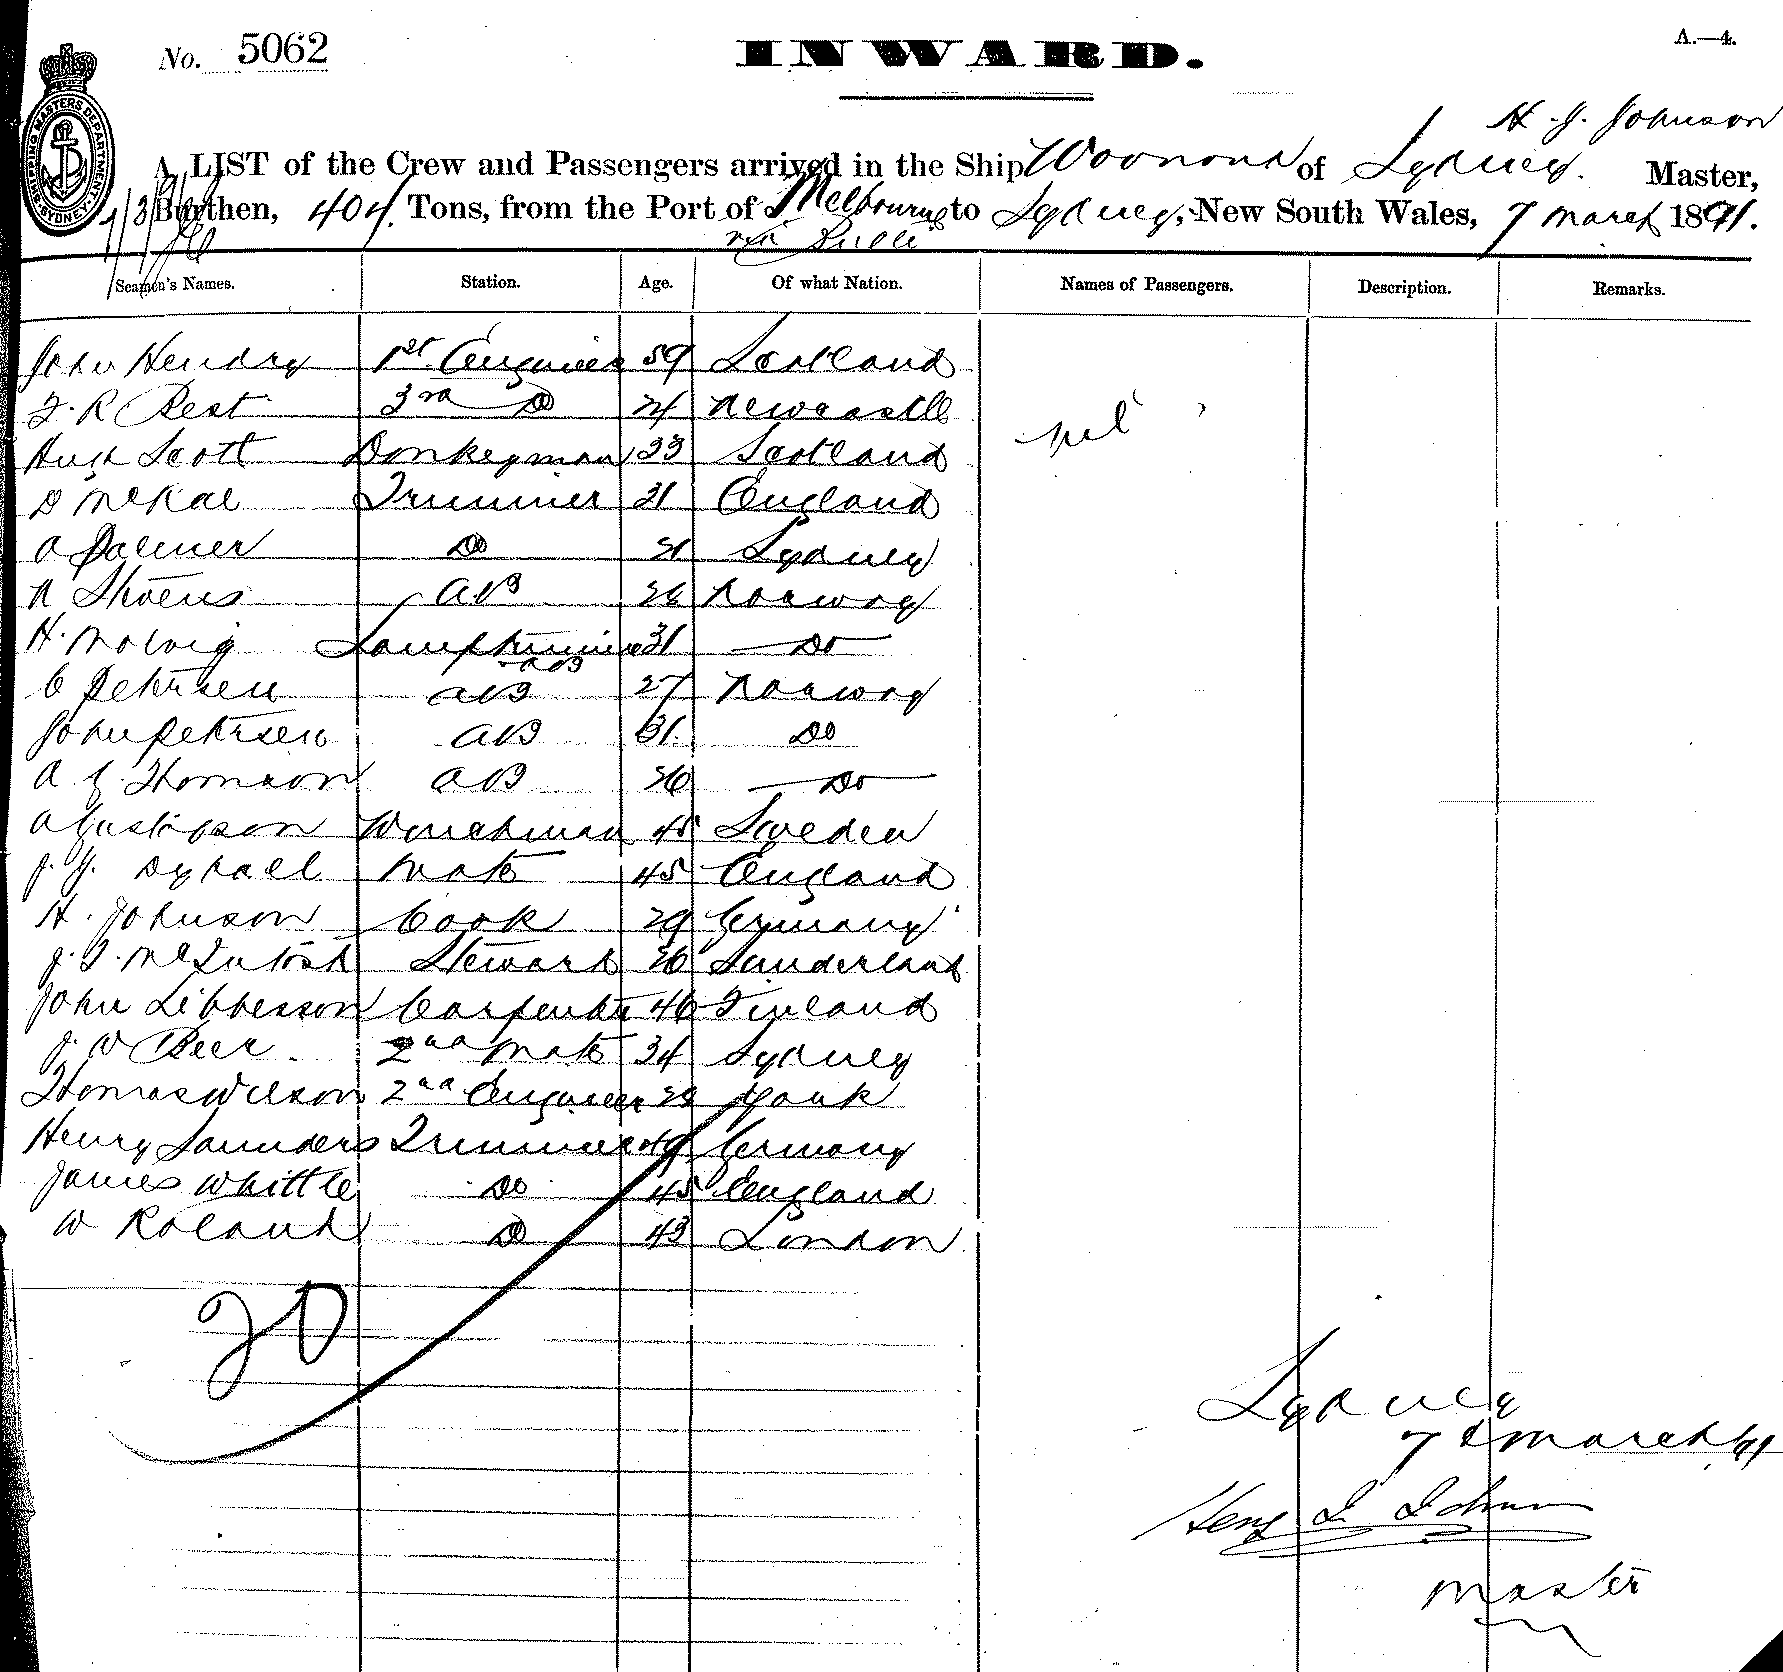 No. 5062
INWARD.
A.—4.
SHIPPING MASTERS DEPARTMENT SYDNEY
H. J. Johnson
A LIST of the Crew and Passengers arrived in the Ship Woonona of Sydney. Master,
Burthen, 404 Tons, from the Port of Melbourne to Sydney, New South Wales, 7 March 1891.
via Bulli
Seamen's Names. Station. Age. Of what Nation. Names of Passengers. Description. Remarks.
John Hendry 1st Engineer 59 Scotland
F. R Best 3rd Do 24 Newcastle
nil
Hugh Scott Donkeyman 33 Scotland
D McRae Trimmer 31 England
A Palmer Do 21 Sydney
AB 28 Norway
H. Molvig Lamptrimmer 31 Do
AB
C Petersen AB 27 Norway
John Petersen AB 31 Do
A J. Thomson AB 26 Do
A Gustafson Winchman 45 Sweden
J. J. Mate 45 England
H. Johnson Cook 29 Germany
J. J. McIntosh Steward 26 Sunderland
John Carpenter 46 Finland
J. W Beer 2nd Mate 34 Sydney
Thomas Wilson 2nd Engineer 28
Henry Saunders Trimmer 49 Germany
James Whittle Do 45 England
W Roland Do 43 London
20
Sydney
7th March 91
Henry J Johnson
Master